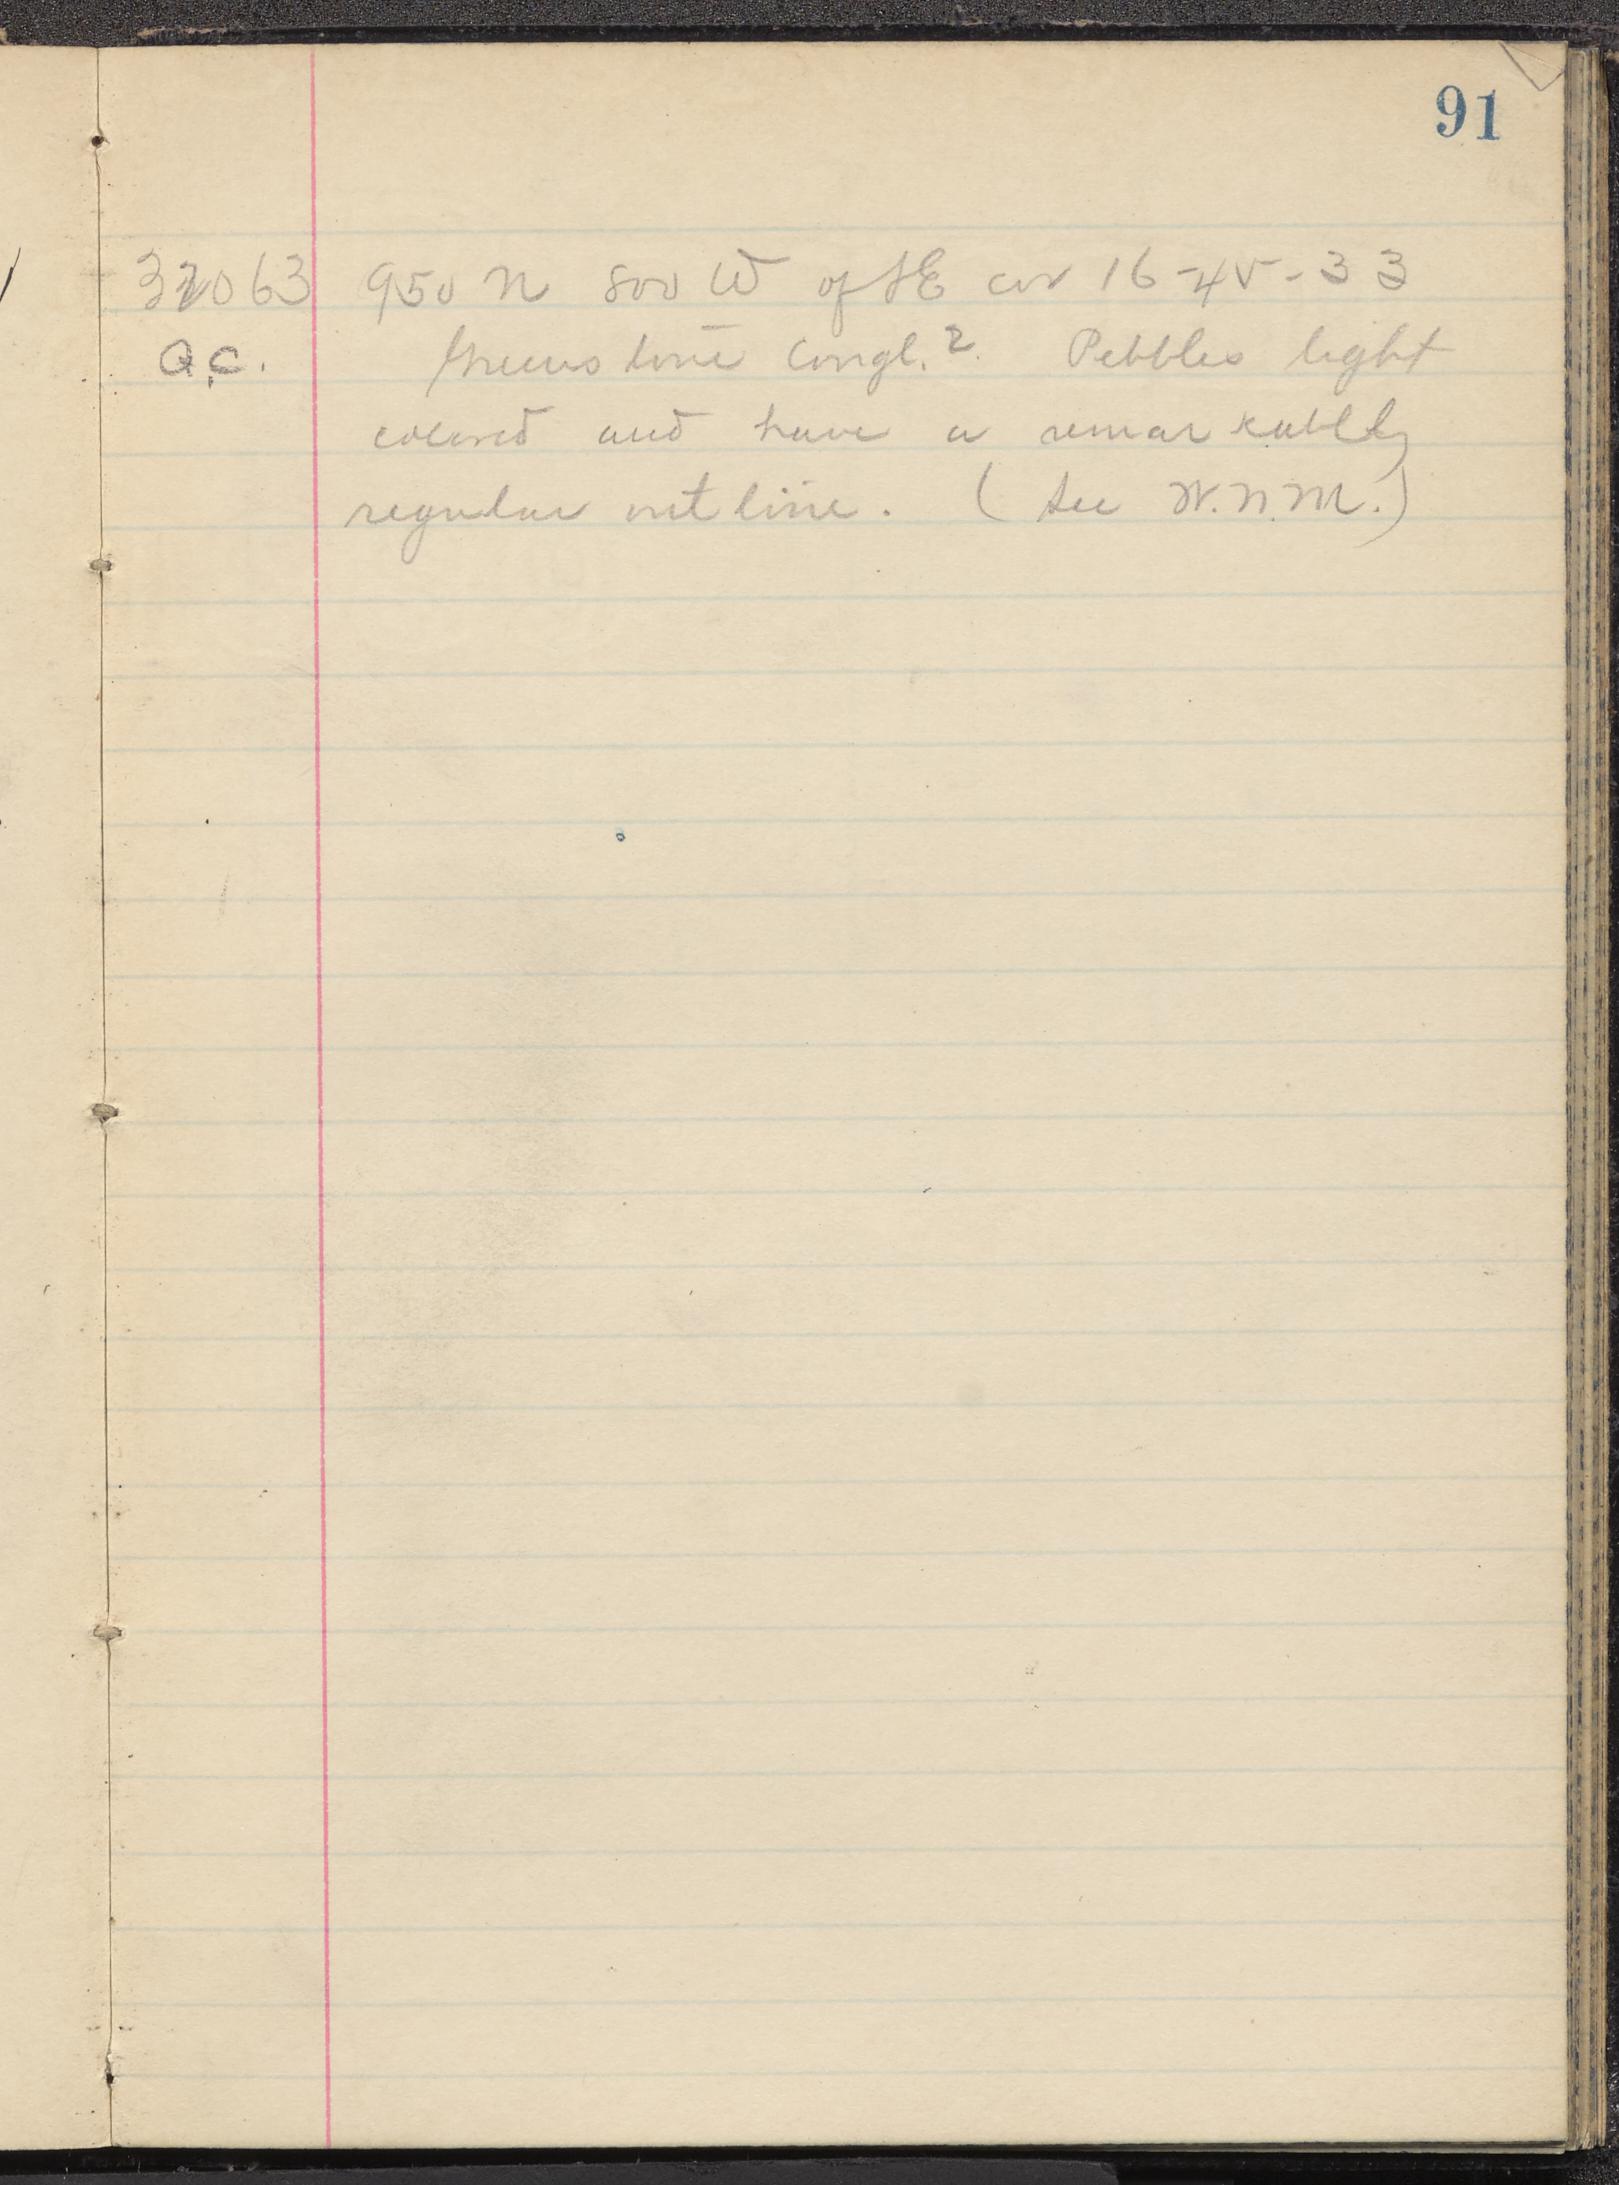 91
32063 950 N 800 W of SE cor 16-45-33
Q.C. Greenstone Congl.? Pebbles light
colored and have a remarkably
regular outline. (See W.N.M.)